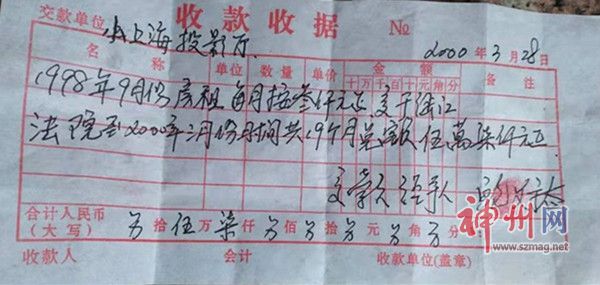 收款收据 №
交款单位 小上海投影厅. 2000年3月28日
名称 单位 数量 单价 金额 备注
十万千百十元角分
1998年9月份房租每月按叁仟元正交于
法院至2000年三月份时间共19个月总额伍萬柒仟元正
交款人 经手人
合计人民币
(大写) 拾伍万柒仟 佰 拾 元 角 分
收款人 会计 收款单位(盖章)
神州网
www.szmag.net